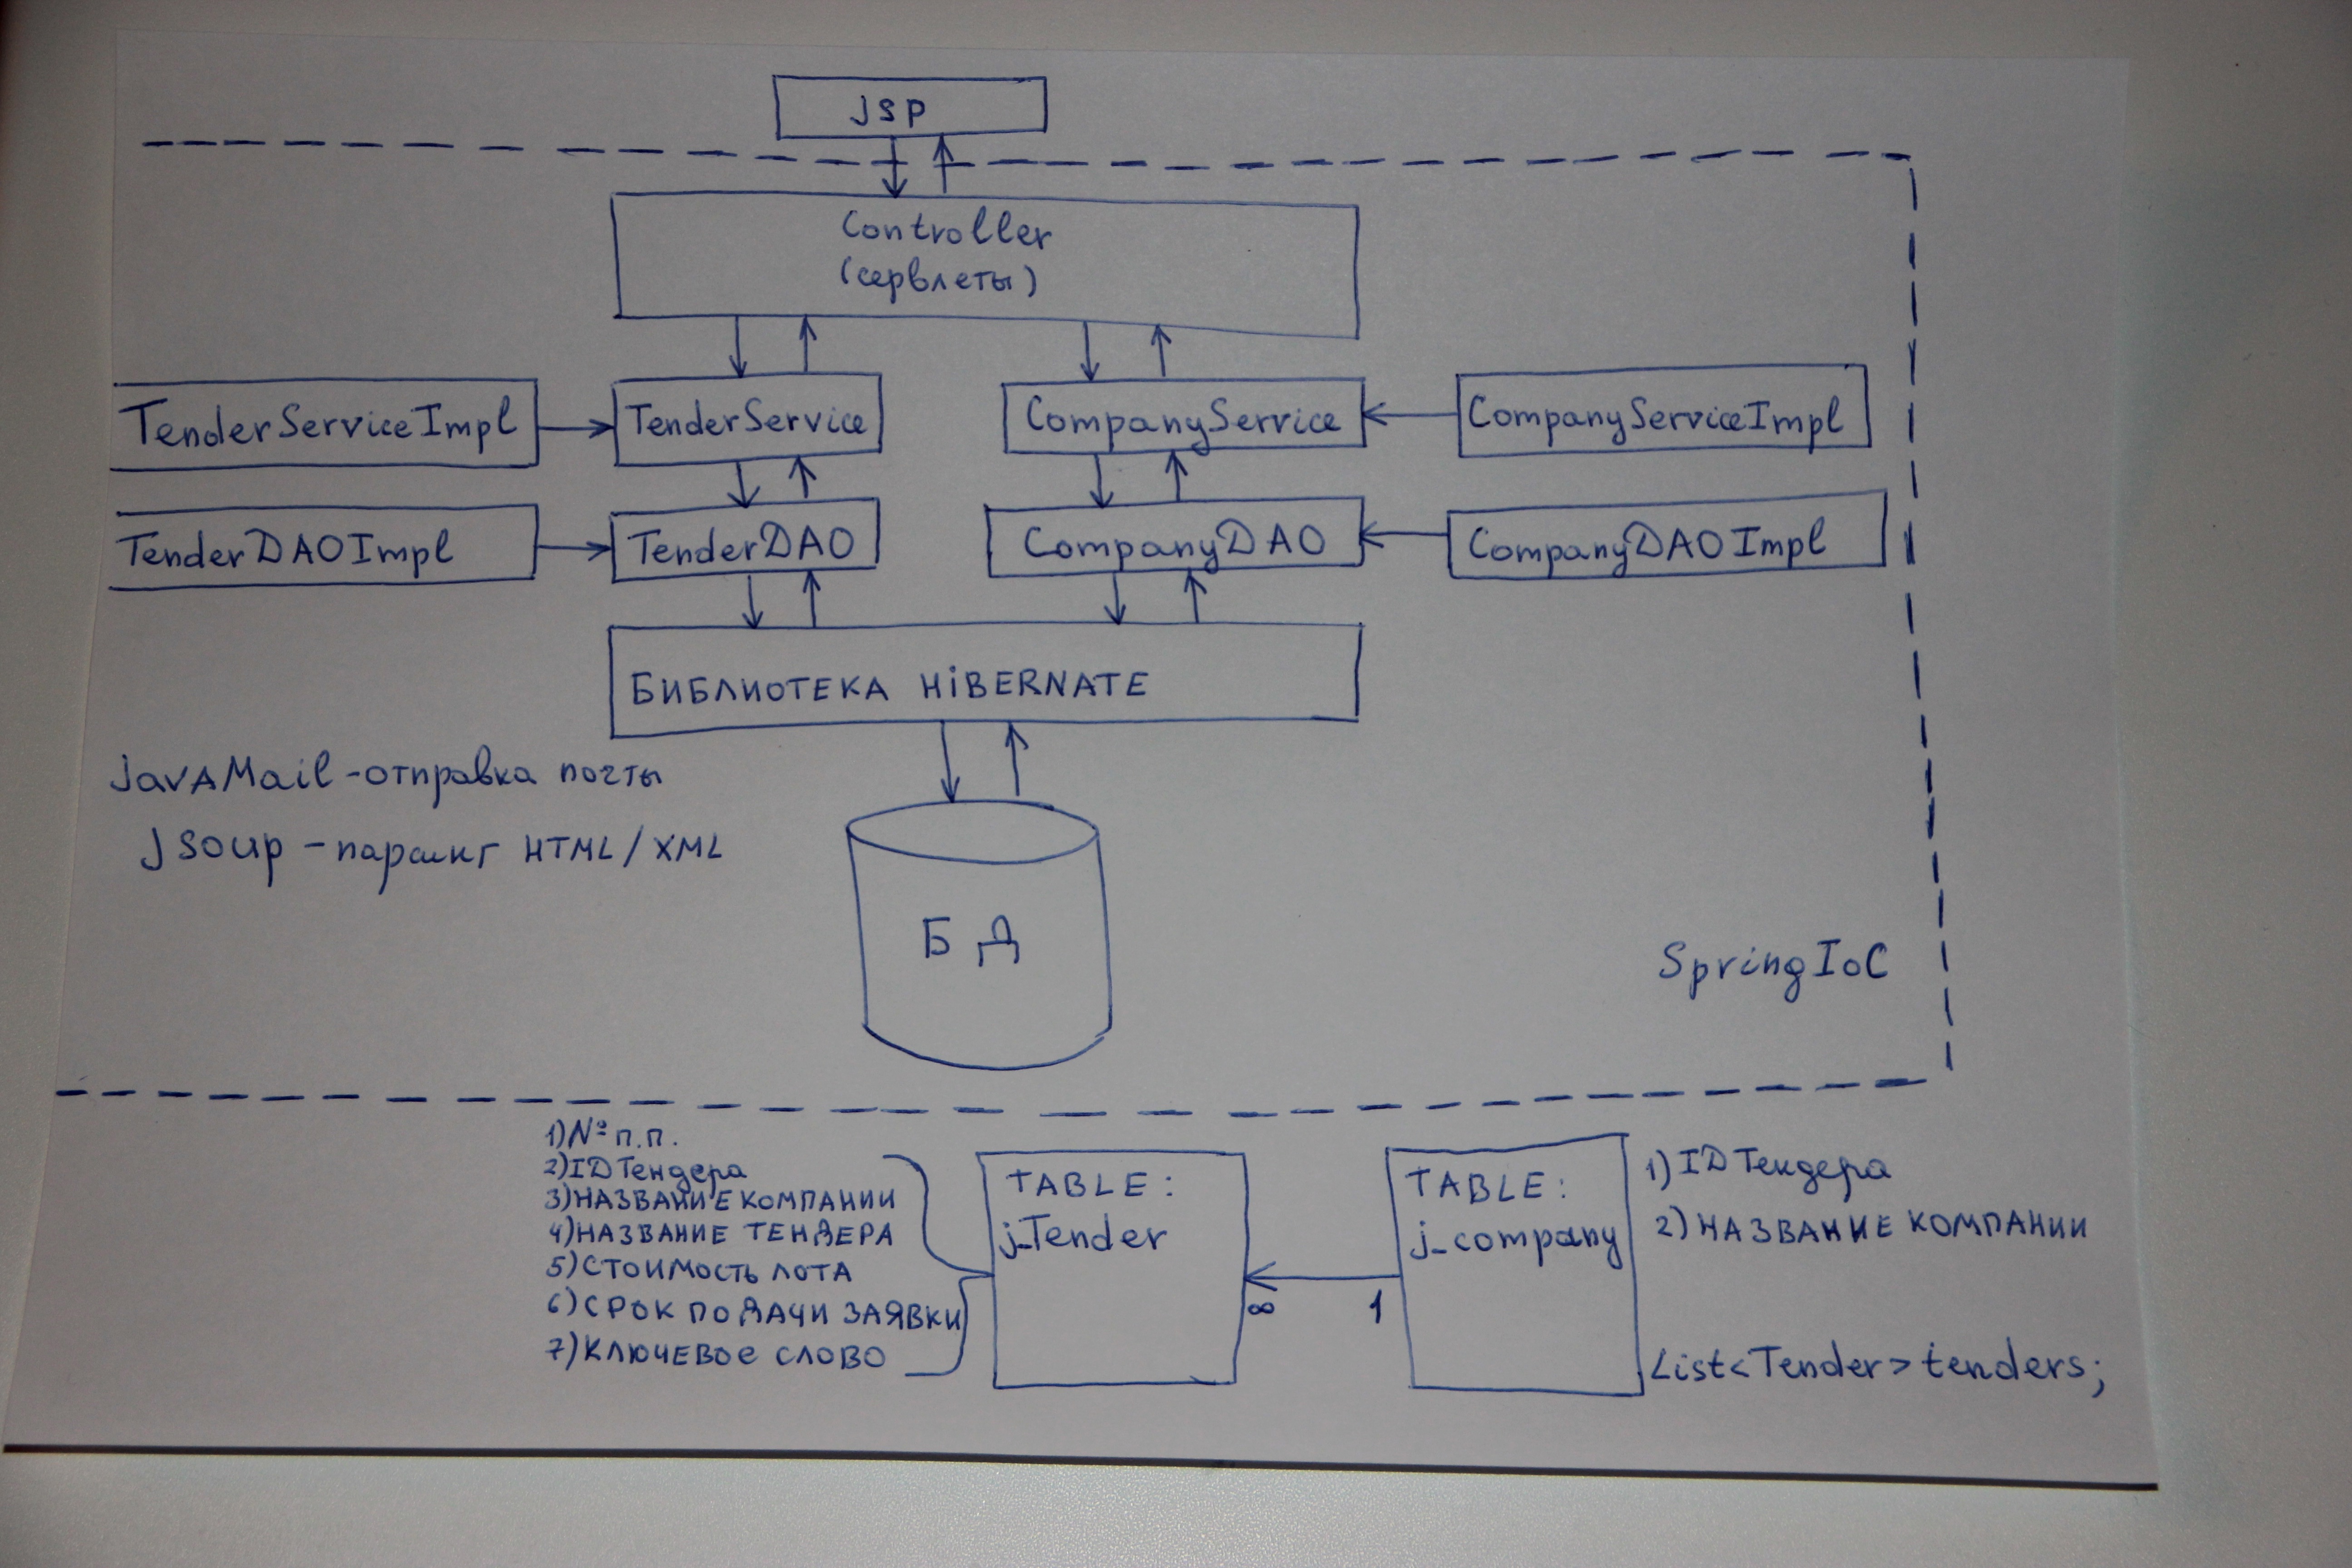 jsp
Controller
(сервлеты)
TenderServiceImpl
TenderService
CompanyService
CompanyServiceImpl
TenderDAOImpl
TenderDAO
CompanyDAO
CompanyDAOImpl
БИБЛИОТЕКА HiBERNATE
javAMail - отправка почты
jsoup - парсинг HTML/XML
БД
SpringIoC
1) № п.п.
2) ID Тендера
3) НАЗВАНИЕ КОМПАНИИ
4) НАЗВАНИЕ ТЕНДЕРА
5) СТОИМОСТЬ ЛОТА
6) СРОК ПОДАЧИ ЗАЯВКИ
7) КЛЮЧЕВОЕ СЛОВО
TABLE:
j_Tender
∞
1
TABLE:
j_company
1) ID Тендера
2) НАЗВАНИЕ КОМПАНИИ
List<Tender> tenders;